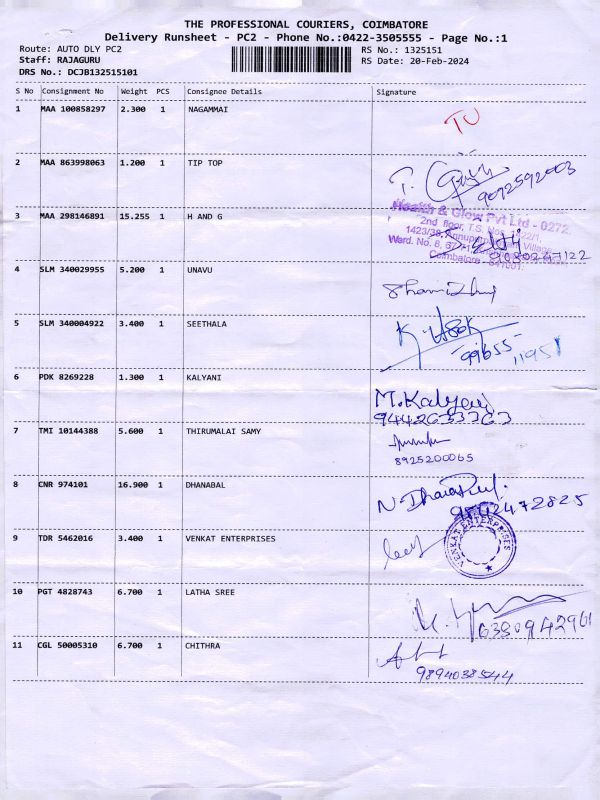 THE PROFESSIONAL COURIERS, COIMBATORE
Delivery Runsheet - PC2 - Phone No.:0422-3505555 - Page No.:1
Route: AUTO DLY PC2 RS No.: 1325151
Staff: RAJAGURU RS Date: 20-Feb-2024
DRS No.: DCJB132515101
S No Consignment No Weight PCS Consignee Details Signature
1 MAA 100858297 2.300 1 NAGAMMAI
2 MAA 863998063 1.200 1 TIP TOP
9092592003
3 MAA 298146891 15.255 1 H AND G
Health & Glow Pvt Ltd - 0272
2nd floor, T.S. Nos.
Ward. No. 8,
9080247122
Coimbatore - 641001.
4 SLM 340029955 5.200 1 UNAVU
5 SLM 340004922 3.400 1 SEETHALA
99655 11951
6 PDK 8269228 1.300 1 KALYANI
M.Kalyani
9442633763
7 TMI 10144388 5.600 1 THIRUMALAI SAMY
8925200065
8 CNR 974101 16.900 1 DHANABAL
9 TDR 5462016 3.400 1 VENKAT ENTERPRISES
VENKAT ENTERPRISES
10 PGT 4828743 6.700 1 LATHA SREE
6380942961
11 CGL 50005310 6.700 1 CHITHRA
9894038544